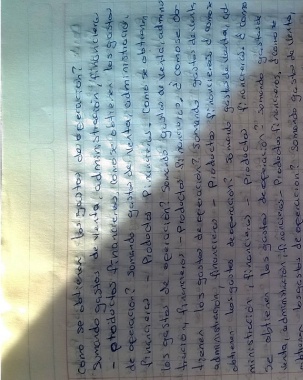 como se obtienen los gastos de operación?
Sumando gastos de venta, administración, financieros
- productos financieros. como se obtienen los gastos
de operación? Sumando gastos de venta, administración,
financieros - Productos financieros. como se obtienen
los gastos de operación? Sumando gastos de venta, admi
tración, financieros - Productos financieros, como se ob
tienen los gastos de operación? Sumando gastos de venta,
administración, financieros - Productos financieros, como
obtienen los gastos de operación? Sumando gastos de venta, ad
ministración financieros - Productos financieros. como
se obtienen los gastos de operación? Sumando gastos de
venta, administración, financieros - Productos financieros, como se
obtienen los gastos de operación? Sumando gastos de venta,